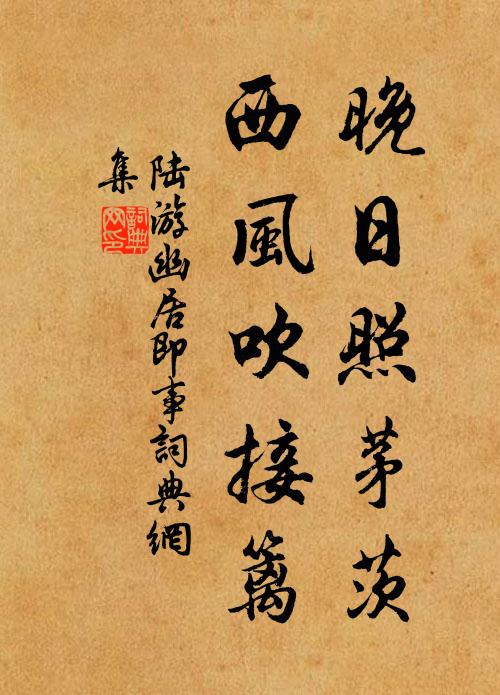 晚日照茅茨
西風吹接篱
陸游幽居即事詞典網
集
詞典
网印